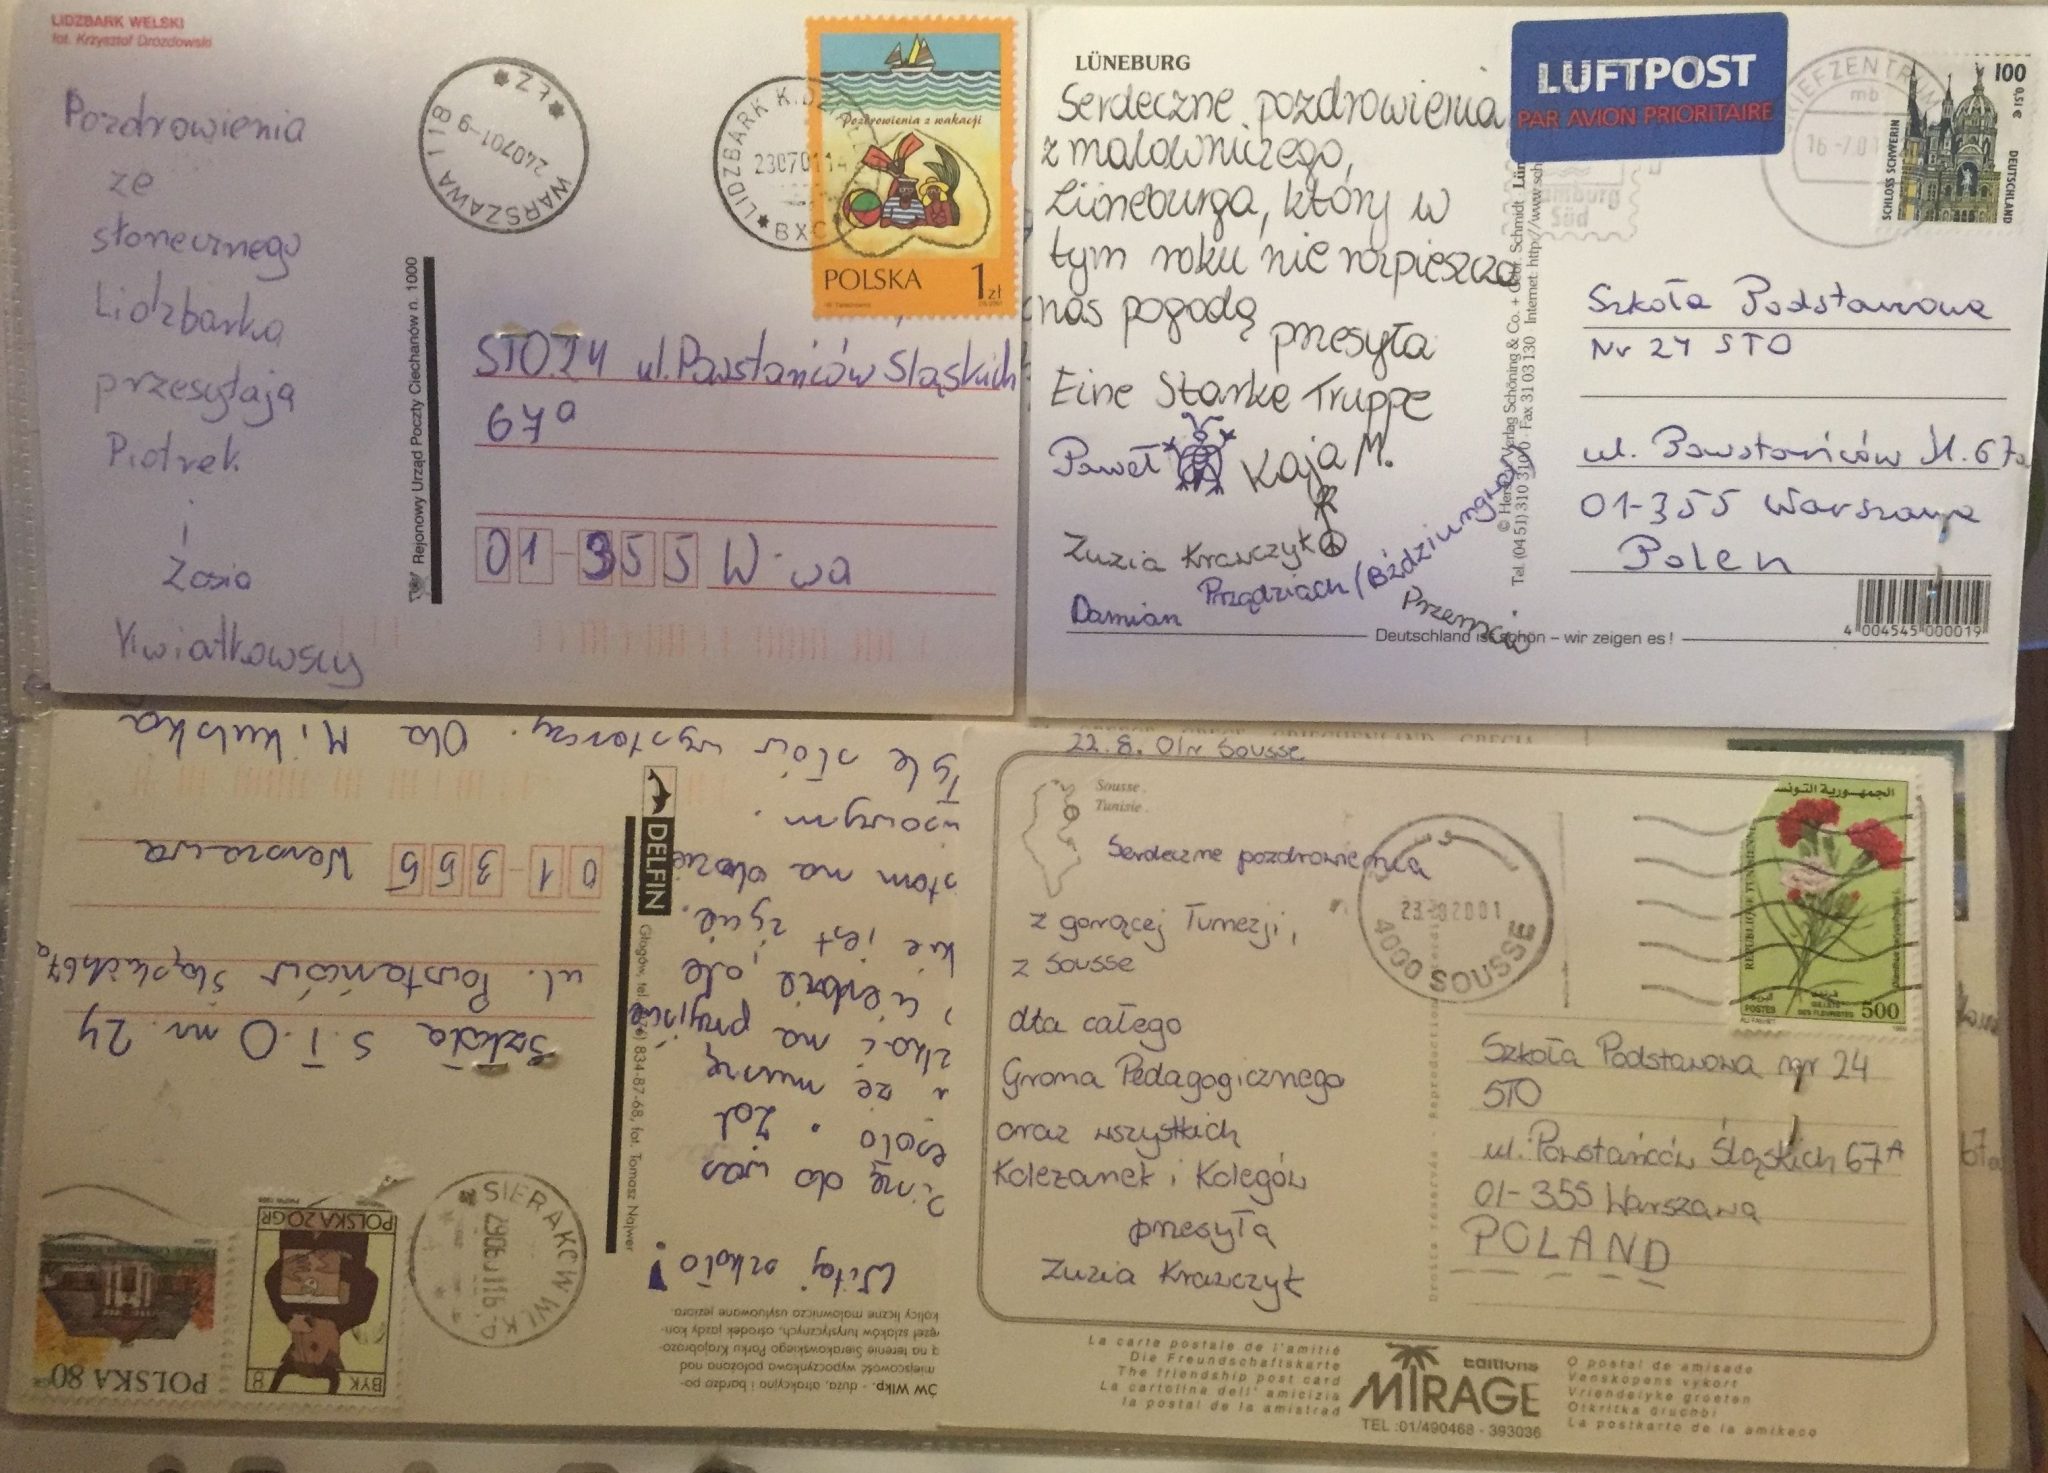 LIDZBARK WELSKI
fot. Krzysztof Drozdowski
Pozdrowienia
ze
słonecznego
Lidzbarka
przesyłają
Piotrek
i
Zosia
Kwiatkowscy
WARSZAWA 118
240701-9
* FZ *
Rejonowy Urząd Poczty Ciechanów n. 1000
LIDZBARK K.DZIAŁ
23070114
* BXC
Pozdrowienia z wakacji
POLSKA 1 zł
STO.24 ul. Powstańców Sląskich
67a
01-355 W-wa
LÜNEBURG
Serdeczne pozdrowienia
z malowniczego,
Lüneburga, który w
tym roku nie rozpieszcza
nas pogodą
przesyła
Eine Starke Truppe
Paweł Kaja M.
Zuzia Krawczyk
Prządziach / Bździungwa
Damian
Przemcio
Deutschland ist schön – wir zeigen es !
LUFTPOST
PAR AVION PRIORITAIRE
BRIEFZENTRUM
mb
16.-7.01
Hamburg
Süd
100
0,51 €
SCHLOSS SCHWERIN
DEUTSCHLAND
Verlag Schöning & Co. + Gebr. Schmidt
Tel. (04 51) 3 10 31 0 · Fax 31 03 130 Internet: http://www.sch
Szkoła Podstawowa
Nr 24 STO
ul. Powstańców Śl. 67a
01-355 Warszawa
Polen
4 004545 000019
JW Wlkp. - duża, atrakcyjna i bardzo po-
miejscowość wypoczynkowa położona nad
ą na terenie Sierakowskiego Parku Krajobrazo-
ręzeł szlaków turystycznych, ośrodek jazdy kon-
kolicy liczne malowniczo usytuowane jeziora.
Witaj szkoło!
Piszę do was
Żal
że muszę
na przyjście
ale
jest życie.
stam na obozie
Tyle słów wystarczy. Ola Mikulska
DELFIN
Głogów, tel. (76) 834-87-68, fot. Tomasz Najwer
SIERAKÓW WLKP
POLSKA 20GR
BYK 8
POLSKA 80 GR
Szkoła S.T.O nr. 24
ul. Powstańców Śląskich 67a
01-355 Warszawa
22.8.01r Sousse
Sousse.
Tunisie.
Serdeczne pozdrowienia
z gorącej Tunezji,
z Sousse
dla całego
Grona Pedagogicznego
oraz wszystkich
Koleżanek i Kolegów
przesyła
Zuzia Krawczyk
4000 SOUSSE
الجمهورية التونسية
REPUBLIQUE TUNISIENNE
POSTES
500
Szkoła Podstawowa nr 24
STO
ul. Powstańców Śląskich 67A
01-355 Warszawa
POLAND
La carte postale de l'amitié
Die Freundschaftskarte
The friendship post card
La cartolina dell' amicizia
la postal de la amistrad
Editions
MIRAGE
TEL :01/490468 - 393036
O postal de amisade
Vanskapens vykort
Vriendelyke groeten
Otkritka Gluchbi
La postkarto de la amikeco